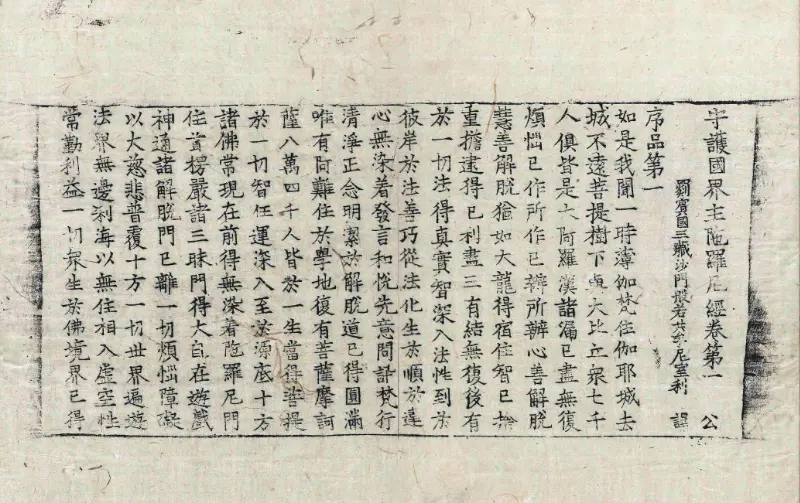 守護國界主陁羅尼經卷第一 公
罽賓國三藏沙門般若共牟尼室利 譯
序品第一
如是我聞一時薄伽梵住伽耶城去
城不遠菩提樹下與大比丘衆七千
人俱皆是大阿羅漢諸漏已盡無復
煩惱已作所作已辦所辦心善解脫
慧善解脫猶如大龍得宿住智已捨
重擔逮得己利盡三有結無復後有
於一切法得真實智深入法性到於
彼岸於法善巧從法化生於順於違
心無染着發言和悅先意問訊梵行
清淨正念明潔於解脫道已得圓滿
唯有阿難住於學地復有菩薩摩訶
薩八萬四千人皆於一生當得菩提
於一切智任運深入至於源底十方
諸佛常現在前得無染着陁羅尼門
住首楞嚴諸三昧門得大自在遊戲
神通諸解脫門已離一切煩惱障礙
以大慈悲普覆十方一切世界遍遊
法界無邊刹海以無住相入虛空性
常勤利益一切衆生於佛境界已得